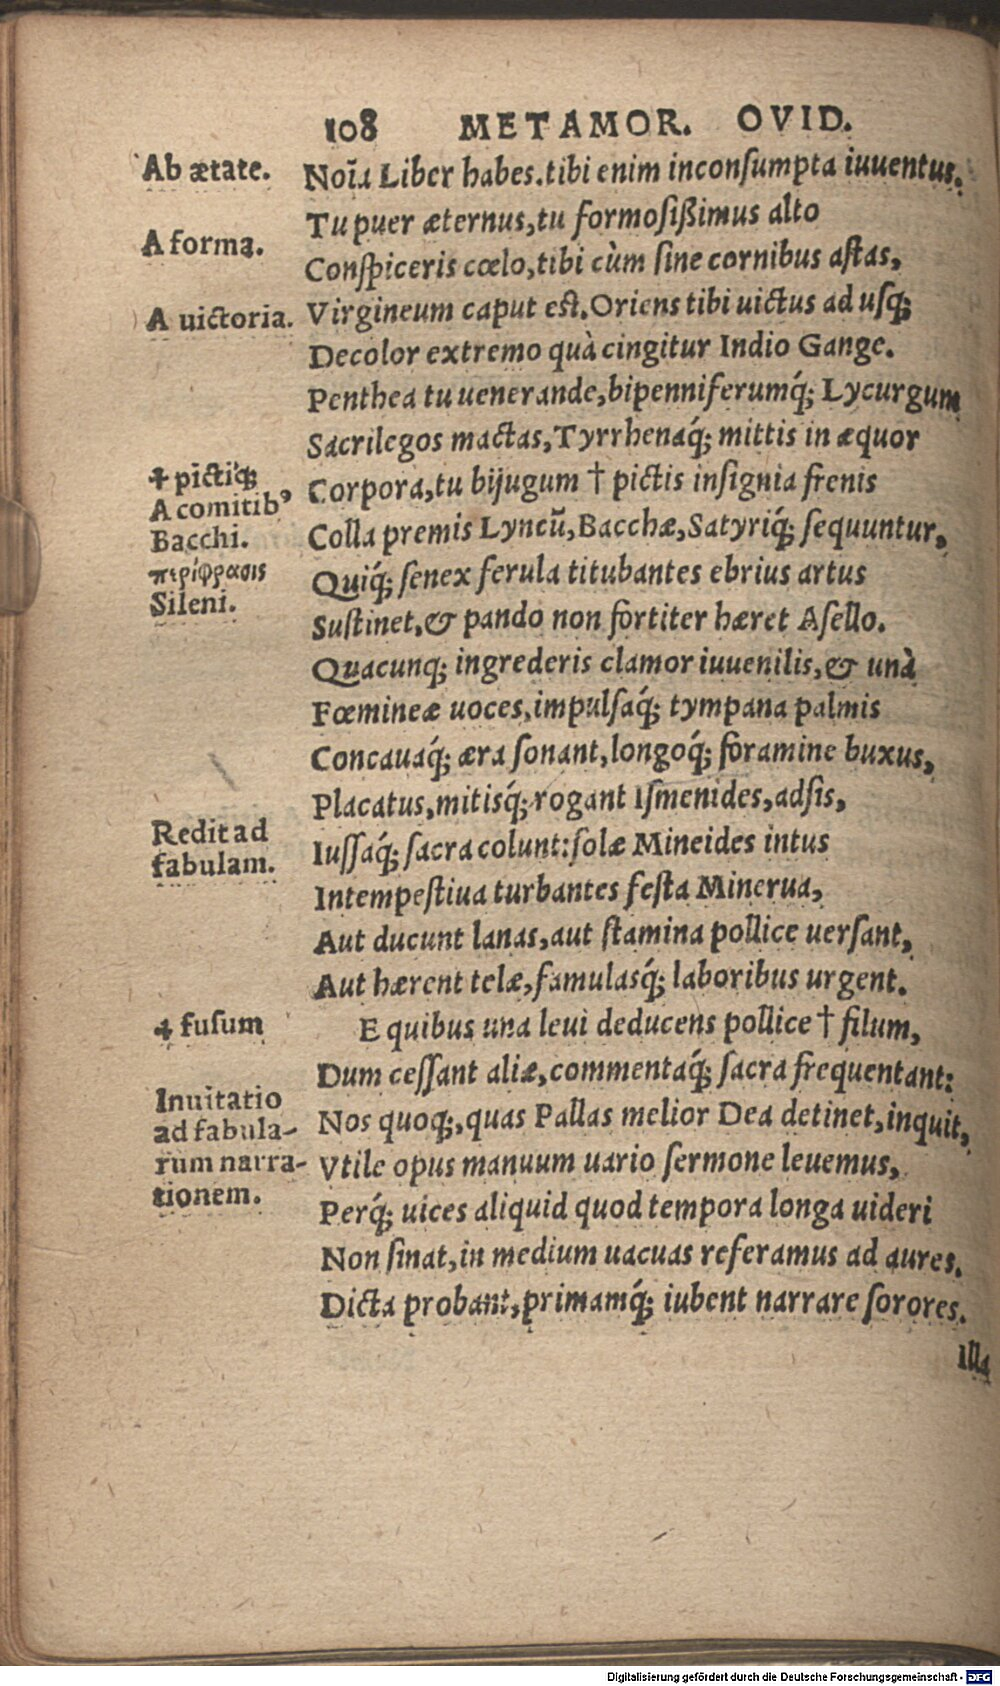 108 METAMOR. OVID.
Ab ætate.
Noīa Liber habes.tibi enim inconſumpta iuuentus.
Tu puer æternus,tu formoſißimus alto
A forma.
Conſpiceris cœlo,tibi cùm ſine cornibus aſtas,
A uictoria.
Virgineum caput eſt.Oriens tibi uictus ad uſq;
Decolor extremo quà cingitur Indio Gange.
Penthea tu uenerande,bipenniferumq́; Lycurgum
Sacrilegos mactas,Tyrrhenaq́; mittis in æquor
✢ pictíq;
Corpora,tu bijugum † pictis inſignia frenis
A comitib⁹
Bacchi.
Colla premis Lyncū,Bacchæ,Satyriq́; ſequuntur,
περίφρασις
Quiq́; ſenex ferula titubantes ebrius artus
Sileni.
Suſtinet,& pando non fortiter hæret Aſello.
Quacunq; ingrederis clamor iuuenilis,& unà
Fœmineæ uoces,impulſaq́; tympana palmis
Concauaq́; æra ſonant,longoq́; foramine buxus,
Placatus,mitisq́; rogant Iſmenides,adſis,
Redit ad
fabulam.
Iuſſaq́; ſacra colunt:ſolæ Mineides intus
Intempeſtiua turbantes feſta Minerua,
Aut ducunt lanas,aut ſtamina pollice uerſant,
Aut hærent telæ,famulasq́; laboribus urgent.
✢ fuſum
E quibus una leui deducens pollice † filum,
Dum ceſſant aliæ,commentaq́; ſacra frequentant:
Inuitatio
ad fabula-
rum narra-
tionem.
Nos quoq;,quas Pallas melior Dea detinet,inquit,
Vtile opus manuum uario ſermone leuemus,
Perq́; uices aliquid quod tempora longa uideri
Non ſinat,in medium uacuas referamus ad aures.
Dicta probant,primamq́; iubent narrare ſorores.
Illa
Digitalisierung gefördert durch die Deutsche Forschungsgemeinschaft - DFG